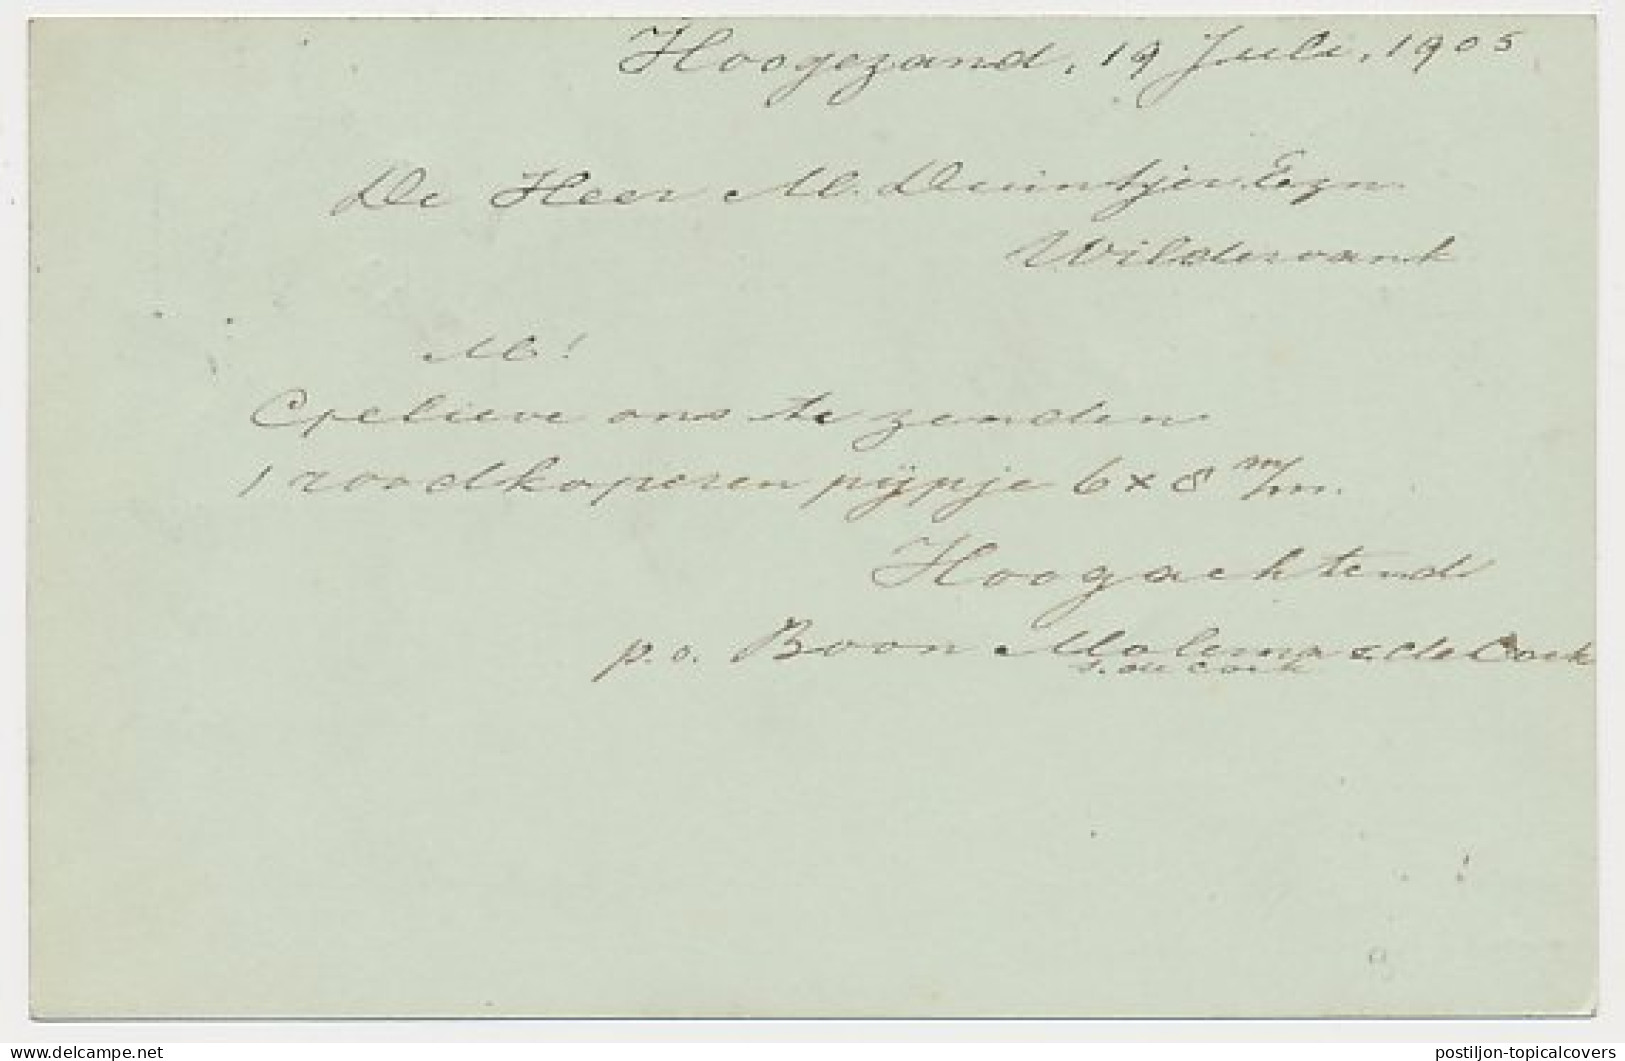 Hoogezand, 19 Juli, 1905
De Heer M. Duintjer Ezn
Wildervank
M!
Gelieve ons te zenden
1 roodkoperen pijpje 6 x 8 m/m.
Hoogachtend
p.o. Boon Molema & de Cock
J. de Cock
postiljon-topicalcovers
© www.delcampe.net